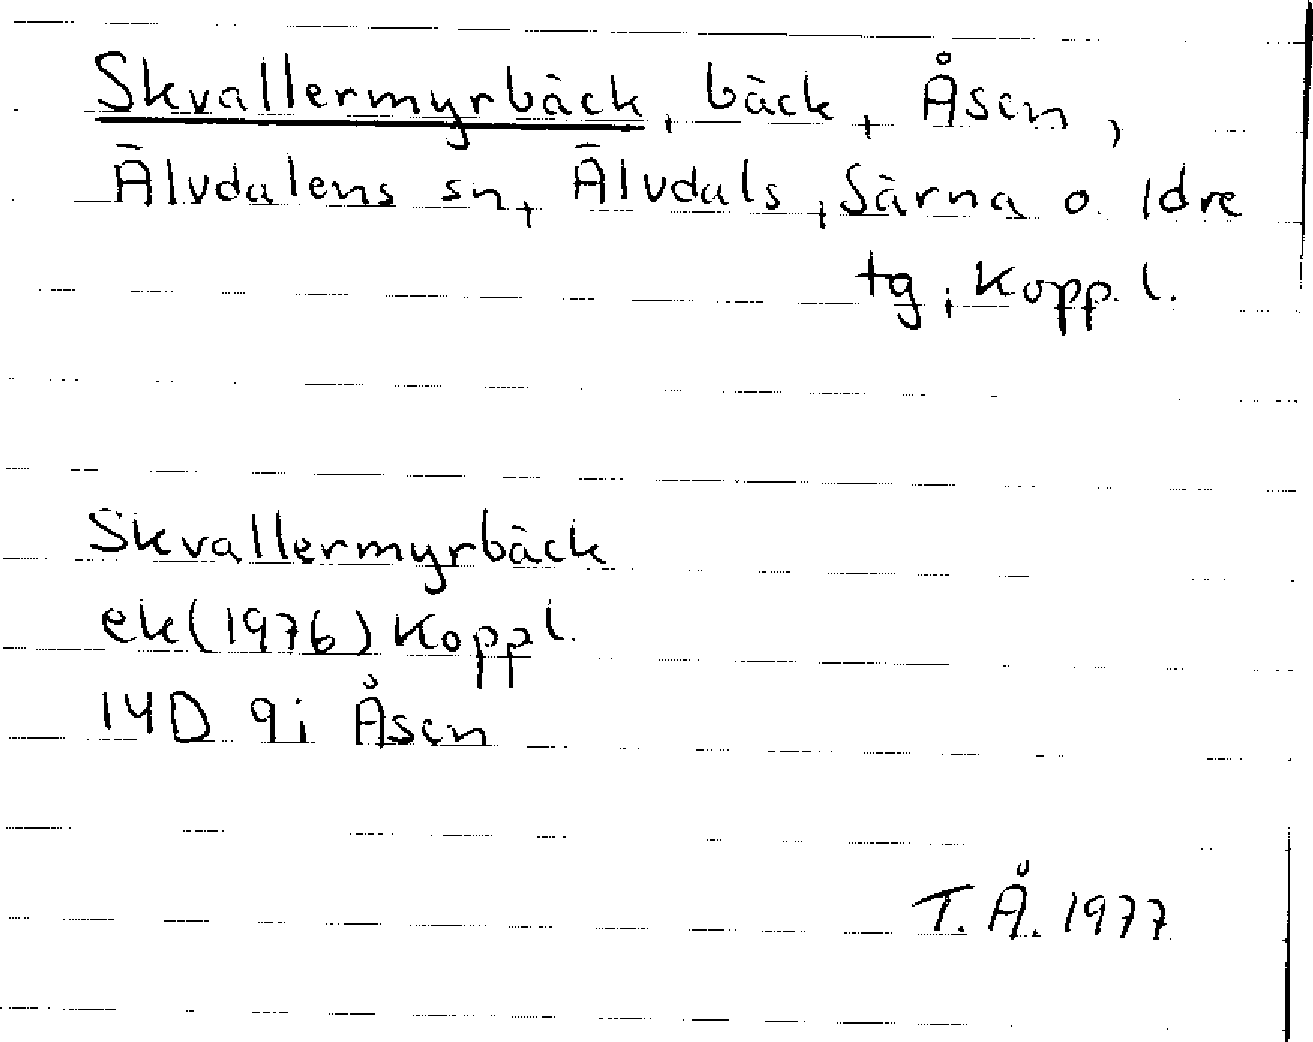 Skvallermyrbäck, bäck, Åsen,
Älvdalens sn, Älvdals, Särna o. Idre
tg, Kopp. l.
Skvallermyrbäck
ek(1976) Koppl.
14D 9i Åsen
T. Å. 1977